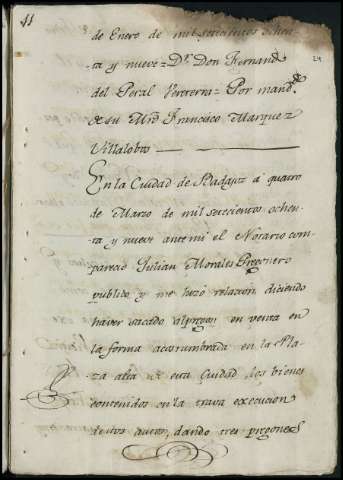 11
24
de Enero de mil setecientos ochen-
-ta y nueve = Dr. Don Fernando
del Peral Verterra = Por mandº
de su Mrd Francisco Marquez
Villalobos
En la Ciudad de Badajoz à quatro
de Marzo de mil setecientos ochen-
-ta y nueve ante mi el Notario com-
parecio Julian Morales Pregonero
publico, y me hizo relacion, diciendo
haver sacado al pregon en venta en
la forma acostumbrada en la Pla-
-za alta de esta Ciudad los bienes
contenidos en la trava execucion
de estos autos, dando tres pregones